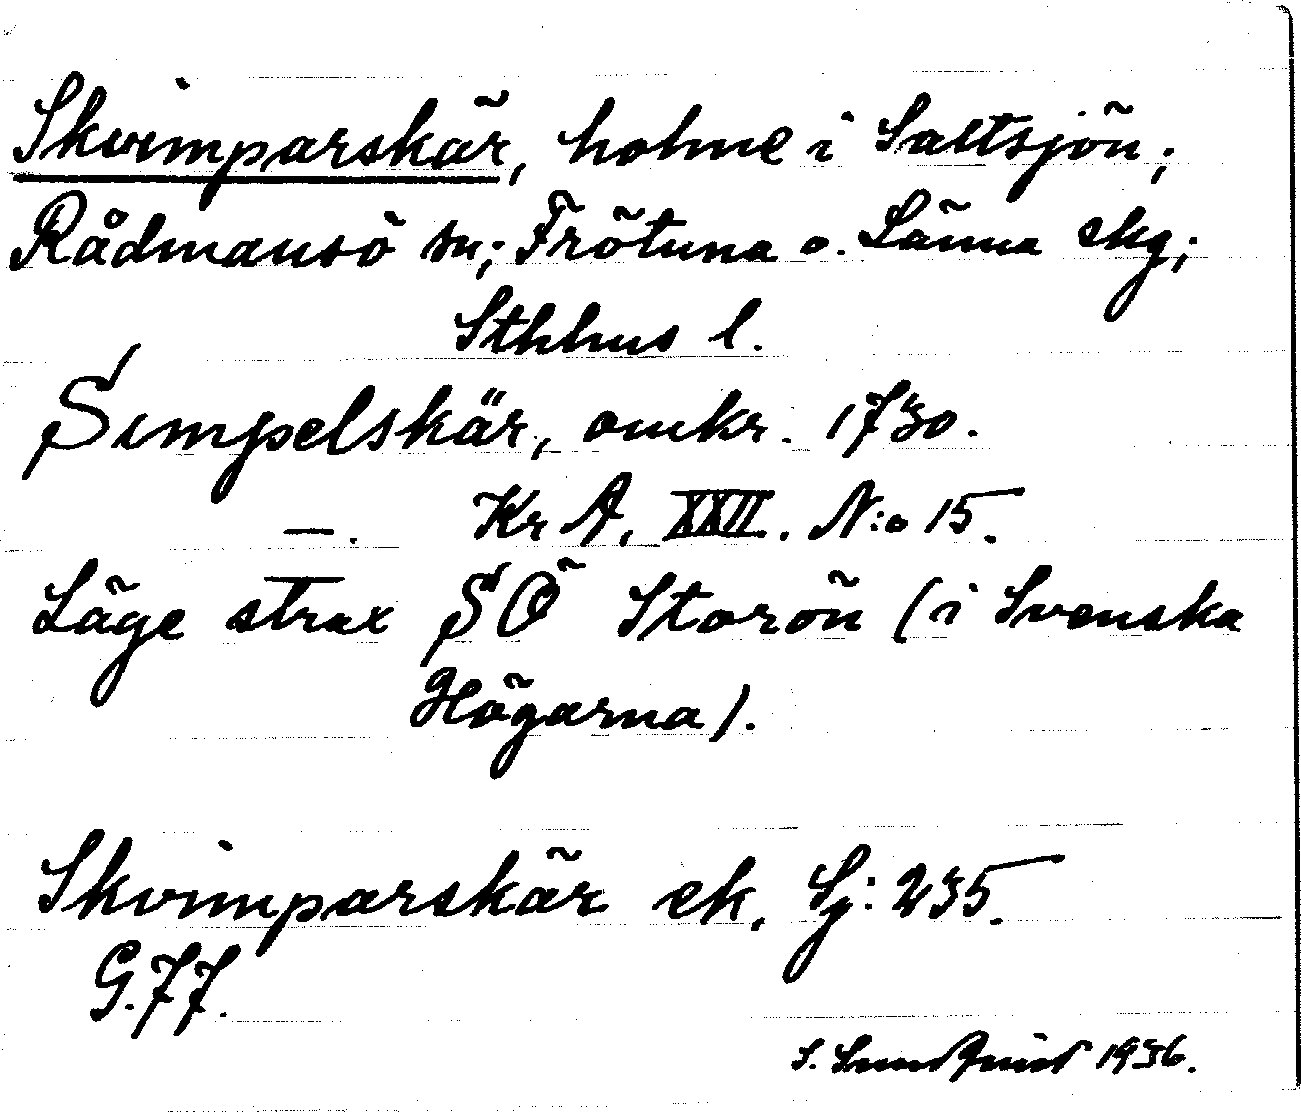 Skvimparskär, holme i Saltsjön;
Rådmansö sn; Frötuna o. Länna skg;
Sthhus l.
Simpelskär, omkr. 1730.
—. Kr A, XXII. N:o 15.
Läge strax SÖ Storön (i Svenska
Högarna).
Skvimparskär ek. Sj: 235.
G.77.
S. Sundqvist 1936.